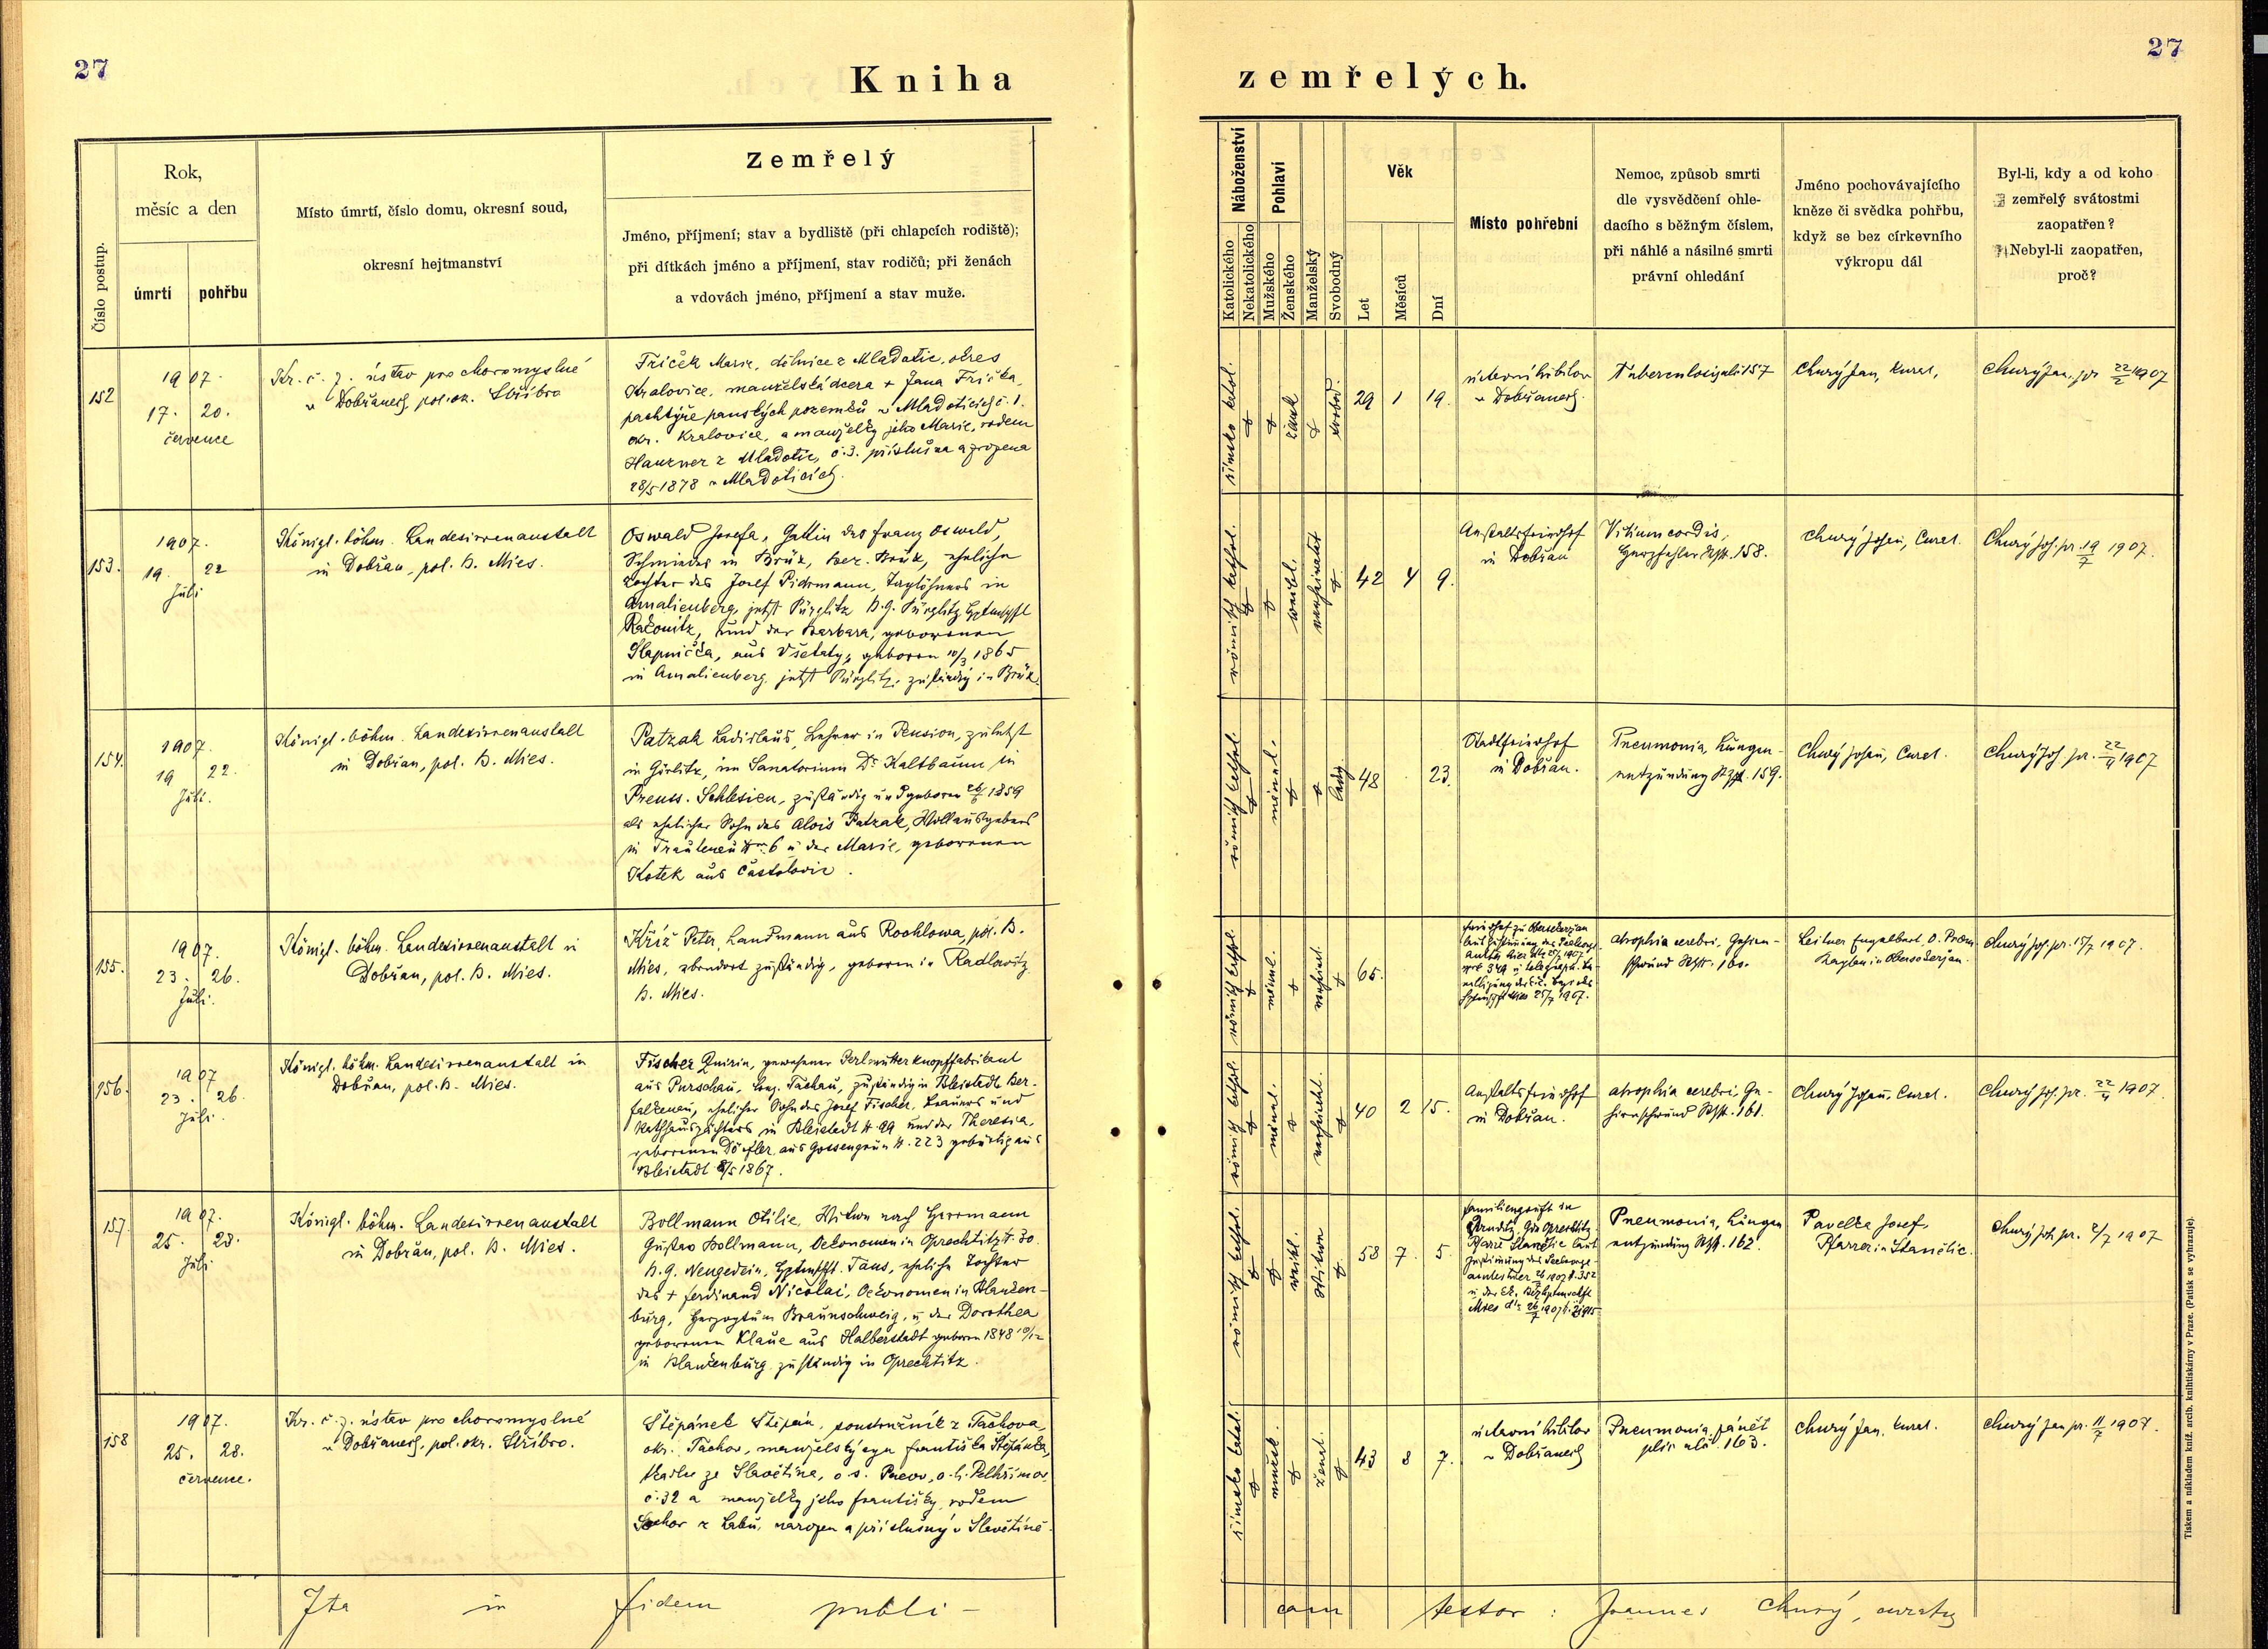 27
27
Kniha zemřelých.
Číslo postup.
Rok,
měsíc a den
úmrtí
pohřbu
Místo úmrtí, číslo domu, okresní soud,
okresní hejtmanství
Zemřelý
Jméno, příjmení; stav a bydliště (při chlapcích rodiště);
při dítkách jméno a příjmení, stav rodičů; při ženách
a vdovách jméno, příjmení a stav muže.
Náboženství
Katolického
Nekatolického
Pohlaví
Mužského
Ženského
Manželský
Svobodný
Věk
Let
Měsíců
Dní
Místo pohřební
Nemoc, způsob smrti
dle vysvědčení ohle-
dacího s běžným číslem,
při náhlé a násilné smrti
právní ohledání
Jméno pochovávajícího
kněze či svědka pohřbu,
když se bez církevního
výkropu dál
Byl-li, kdy a od koho
zemřelý svátostmi
zaopatřen?
Nebyl-li zaopatřen,
proč?
152
1907.
17. 20.
července
Kr. č. z. ústav pro choromyslné
v Dobřanech, pol. ok. Stříbro
Fříček Marie, dělnice z Mladotic, okres
Kralovice, manželská dcera + Jana Fříčka,
pachtýře panských pozemků v Mladoticích č. 1.
okr. Kralovice, a manželky jeho Marie, rodem
z Mladotic, č. 3. příslušna a zrozena
28/5 1878 v Mladoticích.
římsko katol.
žensk
svobod.
29 1 19.
ústavní hřbitov
v Dobřanech.
Tuberculosis 157
Churý Jan, kurat,
Churý Jan, pr 22/2 1907
153.
1907.
19. 22
Juli
Königl. böhm. Landesirrenanstalt
in Dobřan, pol. B. Mies.
Oswald Josefa, Gattin des Franz Oswald,
Schmiedes in Brüx, bez. Brüx, eheliche
Tochter des Josef Pidrmann, Taglöhners in
Amalienberg, jetzt Pürglitz B. G. Pürglitz
Rakonitz, und der Barbara, geborenen
Slapnička, aus Všetaty, geboren 10/3 1865
in Amalienberg, jetzt Pürglitz, zuständig in Brüx.
römisch kathol.
weibl.
verheiratet
42 4 9.
Anstaltsfriedhof
in Dobřan
Vitium cordis,
Herzfehler 158.
Churý Johann, Curat.
Churý Joh. pr. 19/7 1907.
154.
1907.
19 22.
Juli.
Königl. böhm. Landesirrenanstalt
in Dobřan, pol. B. Mies.
Patzak Ladislaus, Lehrer in Pension, zuletzt
in Görlitz, im Sanatorium Dr Kaltbaum in
Preuss. Schlesien, zuständig und geboren 26/6 1859
als ehelicher Sohn des Alois Patzak, Wollausgebers
in Trautenau Nr. 6 u der Marie, geborenen
Kotek aus Častolovic.
römisch kathol.
männl.
ledig
48 23.
Stadtfriedhof
in Dobřan.
Pneumonia, Lungen-
entzündung 159.
Churý Johann, Curat.
Churý Joh pr. 22/4 1907
155.
1907.
23. 26.
Juli.
Königl. böhm. Landesirrenanstalt in
Dobřan, pol. B. Mies.
Kříž Peter, Landmann aus Rochlowa, pol. B.
Mies, ebendort zuständig, geboren in Radlowitz
B. Mies.
römisch kathol.
männl.
verheirat.
65.
atrophia cerebri, Gehirn-
schwund 160.
Leitner Engelbert, O. Praem
Kaplan in Obersekerjan.
Churý Joh. pr. 15/7 1907.
156.
1907
23. 26.
Juli.
Königl. böhm. Landesirrenanstalt in
Dobřan, pol. B. Mies.
Fischer Quirin, gewesener Perlmutterknopffabrikant
aus Purschau, bez. Tachau, zuständig in Bleistadt Ber.
Falkenau, ehelicher Sohn des Josef Fischer, Brauers und
Rathhauspächters in Bleistadt N. 99 und der Theresia,
geborenen Dörfler aus Gossengrün N. 223 gebürtig aus
Bleistadt 8/5 1867.
römisch kathol.
männl.
verheirat.
40 2 15.
Anstaltsfriedhof
in Dobřan.
atrophia cerebri, Ge-
hirnschwund 161.
Churý Johann, Curat.
Churý Joh. pr. 22/4 1907.
157.
1907.
25. 28.
Juli.
Königl. böhm. Landesirrenanstalt
in Dobřan, pol. B. Mies.
Bollmann Otilie, Witwe nach Herrmann
Gustav Bollmann, Oekonomen in Oprechtitz N. 30.
B. G. Neugedein, Taus, eheliche Tochter
des + Ferdinand Nicolai, Oekonomen in Blanken-
burg, Herzogtum Braunschweig, u. der Dorothea
geborenen Klaue aus Halberstadt geboren 1848 10/12
in Blankenburg, zuständig in Oprechtitz.
römisch kathol.
weibl.
Witwe
58 7. 5.
Familiengruft in
Pneumonia, Lungen
entzündung 162.
Pavelka Josef,
Pfarrer in Stanětic.
Churý Joh. pr. 2/7 1907
158
1907.
25. 28.
července.
Kr. č. z. ústav pro choromyslné
v Dobřanech, pol. okr. Stříbro.
Štěpánek Štěpán, soustružník z Tachova,
okr. Tachov, manželský syn Františka Štěpánka,
tkadlce ze Slavětína, o. s. Pacov, o. h. Pelhřimov,
č. 32 a manželky jeho Františky, rodem
Sochor z Eshů, narozen a příslušný v Slavětíně.
římsko katol.
mužsk.
ženat.
43 8 7.
ústavní hřbitov
v Dobřanech
Pneumonia, zánět
plic 163.
Churý Jan, kurat.
Churý Jan pr. 11/7 1907.
Ita in fidem publi-cam testor: Joannes Churý, curatus
Tiskem a nákladem kníž. arcib. knihtiskárny v Praze. (Patisk se vyhrazuje).